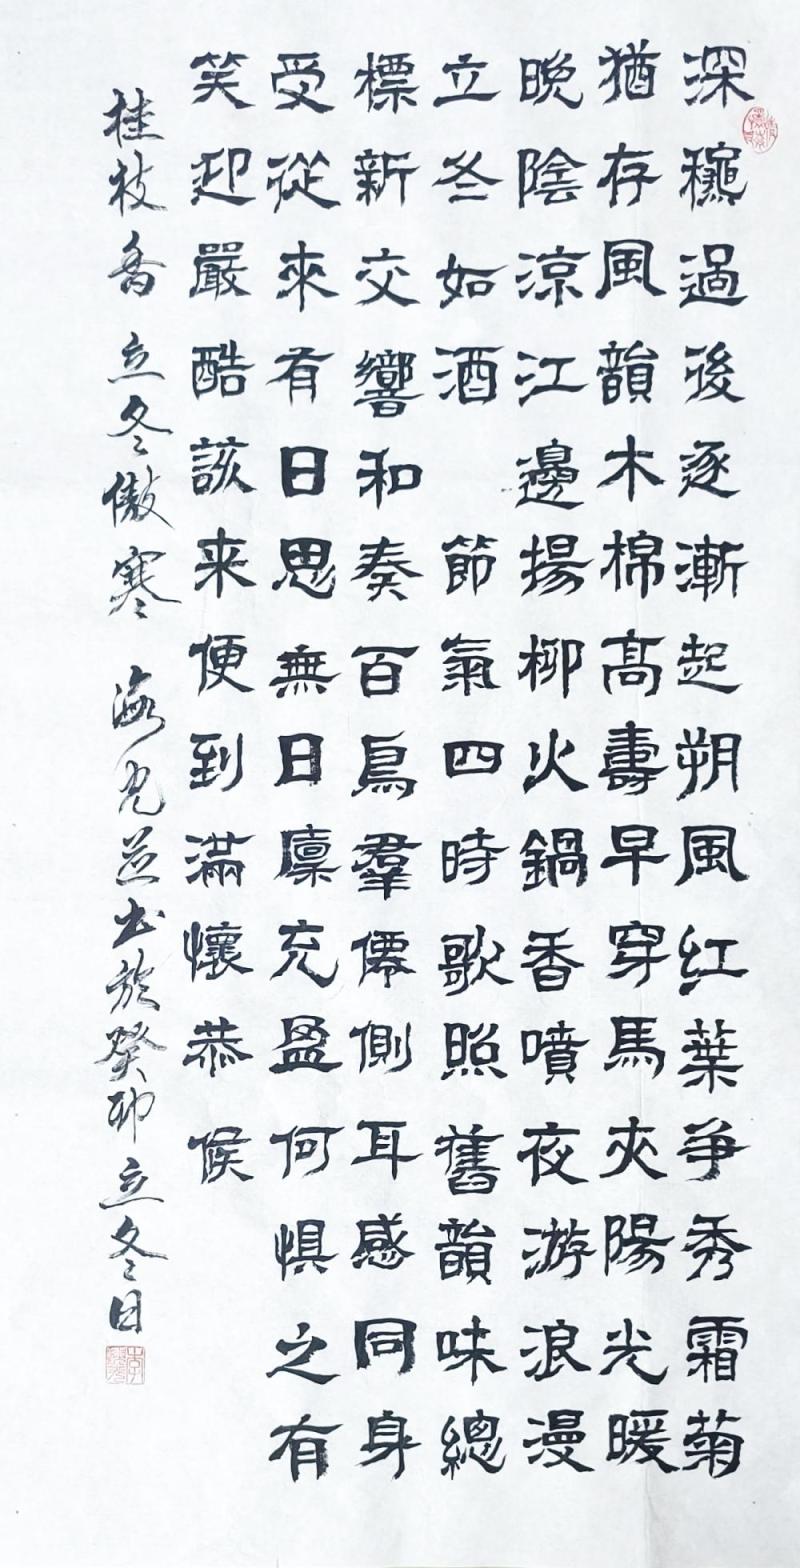 深龝過後逐漸起朔風红葉争秀霜菊
猶存風韻木棉高壽早穿馬夾陽光暖
晚陰涼江邊揚柳火鍋香噴夜游浪漫
立冬如酒 節氣四時歌照舊韻味總
標新交響和奏百鳥羣儒側耳感同身
受從來有日思無日廪充盈何惧之有
笑迎嚴酷該来便到滿懷恭候
桂枝香 立冬傲寒 海光并书於癸卯立冬日